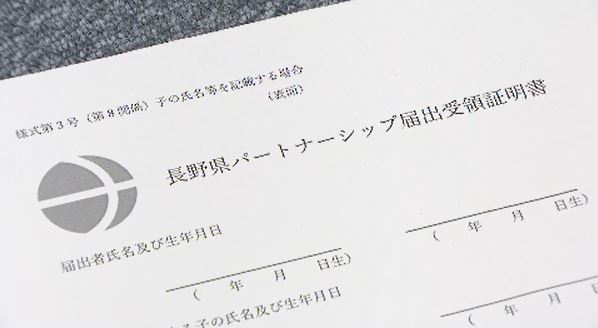 様式第3号（第8関係）子の氏名等を記載する場合
（表面）
長野県パートナーシップ届出受領証明書
届出者氏名及び生年月日
（　年　月　日生）
（　年　月　日生）
る子の氏名及び生年月日
（　年　月